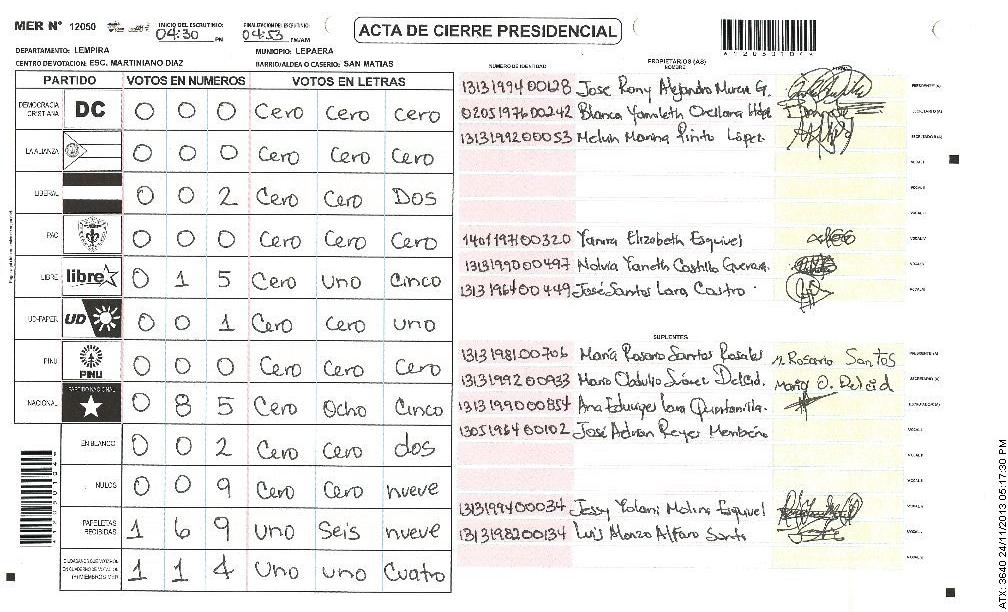 MER N° 12050
INICIO DEL ESCRUTINIO:
04:30 PM
FINALIZACION DEL ESCRUTINIO:
04:53 PM/AM
ACTA DE CIERRE PRESIDENCIAL
DEPARTAMENTO: LEMPIRA
MUNICIPIO: LEPAERA
CENTRO DE VOTACION: ESC. MARTINIANO DIAZ
BARRIO/ALDEA O CASERIO: SAN MATIAS
PARTIDO VOTOS EN NUMEROS VOTOS EN LETRAS
DEMOCRACIA CRISTIANA DC 0 0 0 Cero Cero cero
LA ALIANZA 0 0 0 Cero Cero Cero
LIBERAL 0 0 2 Cero Cero Dos
PAC 0 0 0 Cero Cero Cero
LIBRE libre 0 1 5 Cero uno Cinco
UD-FAPER UD 0 0 1 Cero Cero uno
PINU PINU 0 0 0 Cero Cero Cero
NACIONAL PARTIDO NACIONAL 0 8 5 Cero Ocho Cinco
EN BLANCO 0 0 2 Cero Cero dos
NULOS 0 0 9 Cero Cero nueve
PAPELETAS RECIBIDAS 1 6 9 uno Seis nueve
1 1 4 uno uno Cuatro
NUMERO DE IDENTIDAD PROPIETARIOS (AS)
NOMBRE
1313199400128 Jose Rony Alejandro G. PRESIDENTE (A)
0205197600242 Blanca Yamileth Orellana SECRETARIO (A)
1313199200053 Melvin Pinto López. ESCRUTADOR (A)
VOCAL I
VOCAL II
VOCAL III
1401197100320 Yanira Elizabeth Esquivel VOCAL IV
1313199000497 Nolvia Yaneth Castillo Guevara. VOCAL V
1313196400449 José Santos Lara Castro VOCAL VI
SUPLENTES
1313198100706 María Rosario Santos Rosales M. Rosario Santos PRESIDENTE (A)
1313199200933 Mario Obdulio Suárez Delcid. Mario O. Delcid SECRETARIO (A)
1313199000854 Ana Eduviges Lara Quintanilla. ESCRUTADOR (A)
1305196400102 José Adrian Reyes Membreño VOCAL I
VOCAL II
VOCAL III
1313199400034 Jessy Yolani Molina Esquivel VOCAL IV
1313198200134 Luis Alonzo Alfaro Santos VOCAL V
VOCAL VI
ATX: 3640 24/11/2013 05:17:30 PM